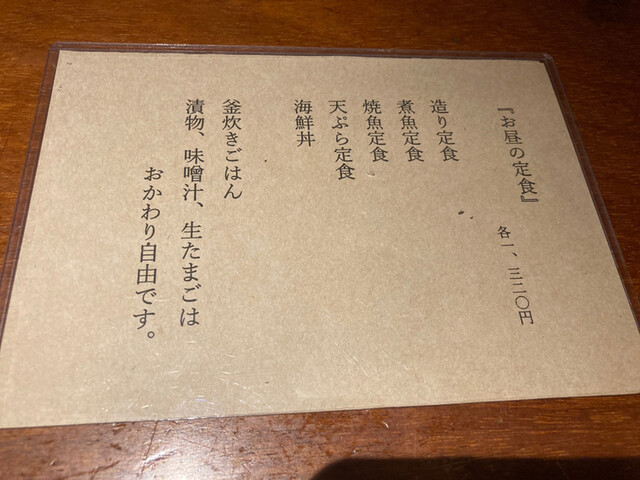 『お昼の定食』
各一、三二〇円
造り定食
煮魚定食
焼魚定食
天ぷら定食
海鮮丼
釜炊きごはん
漬物、味噌汁、生たまごは
おかわり自由です。